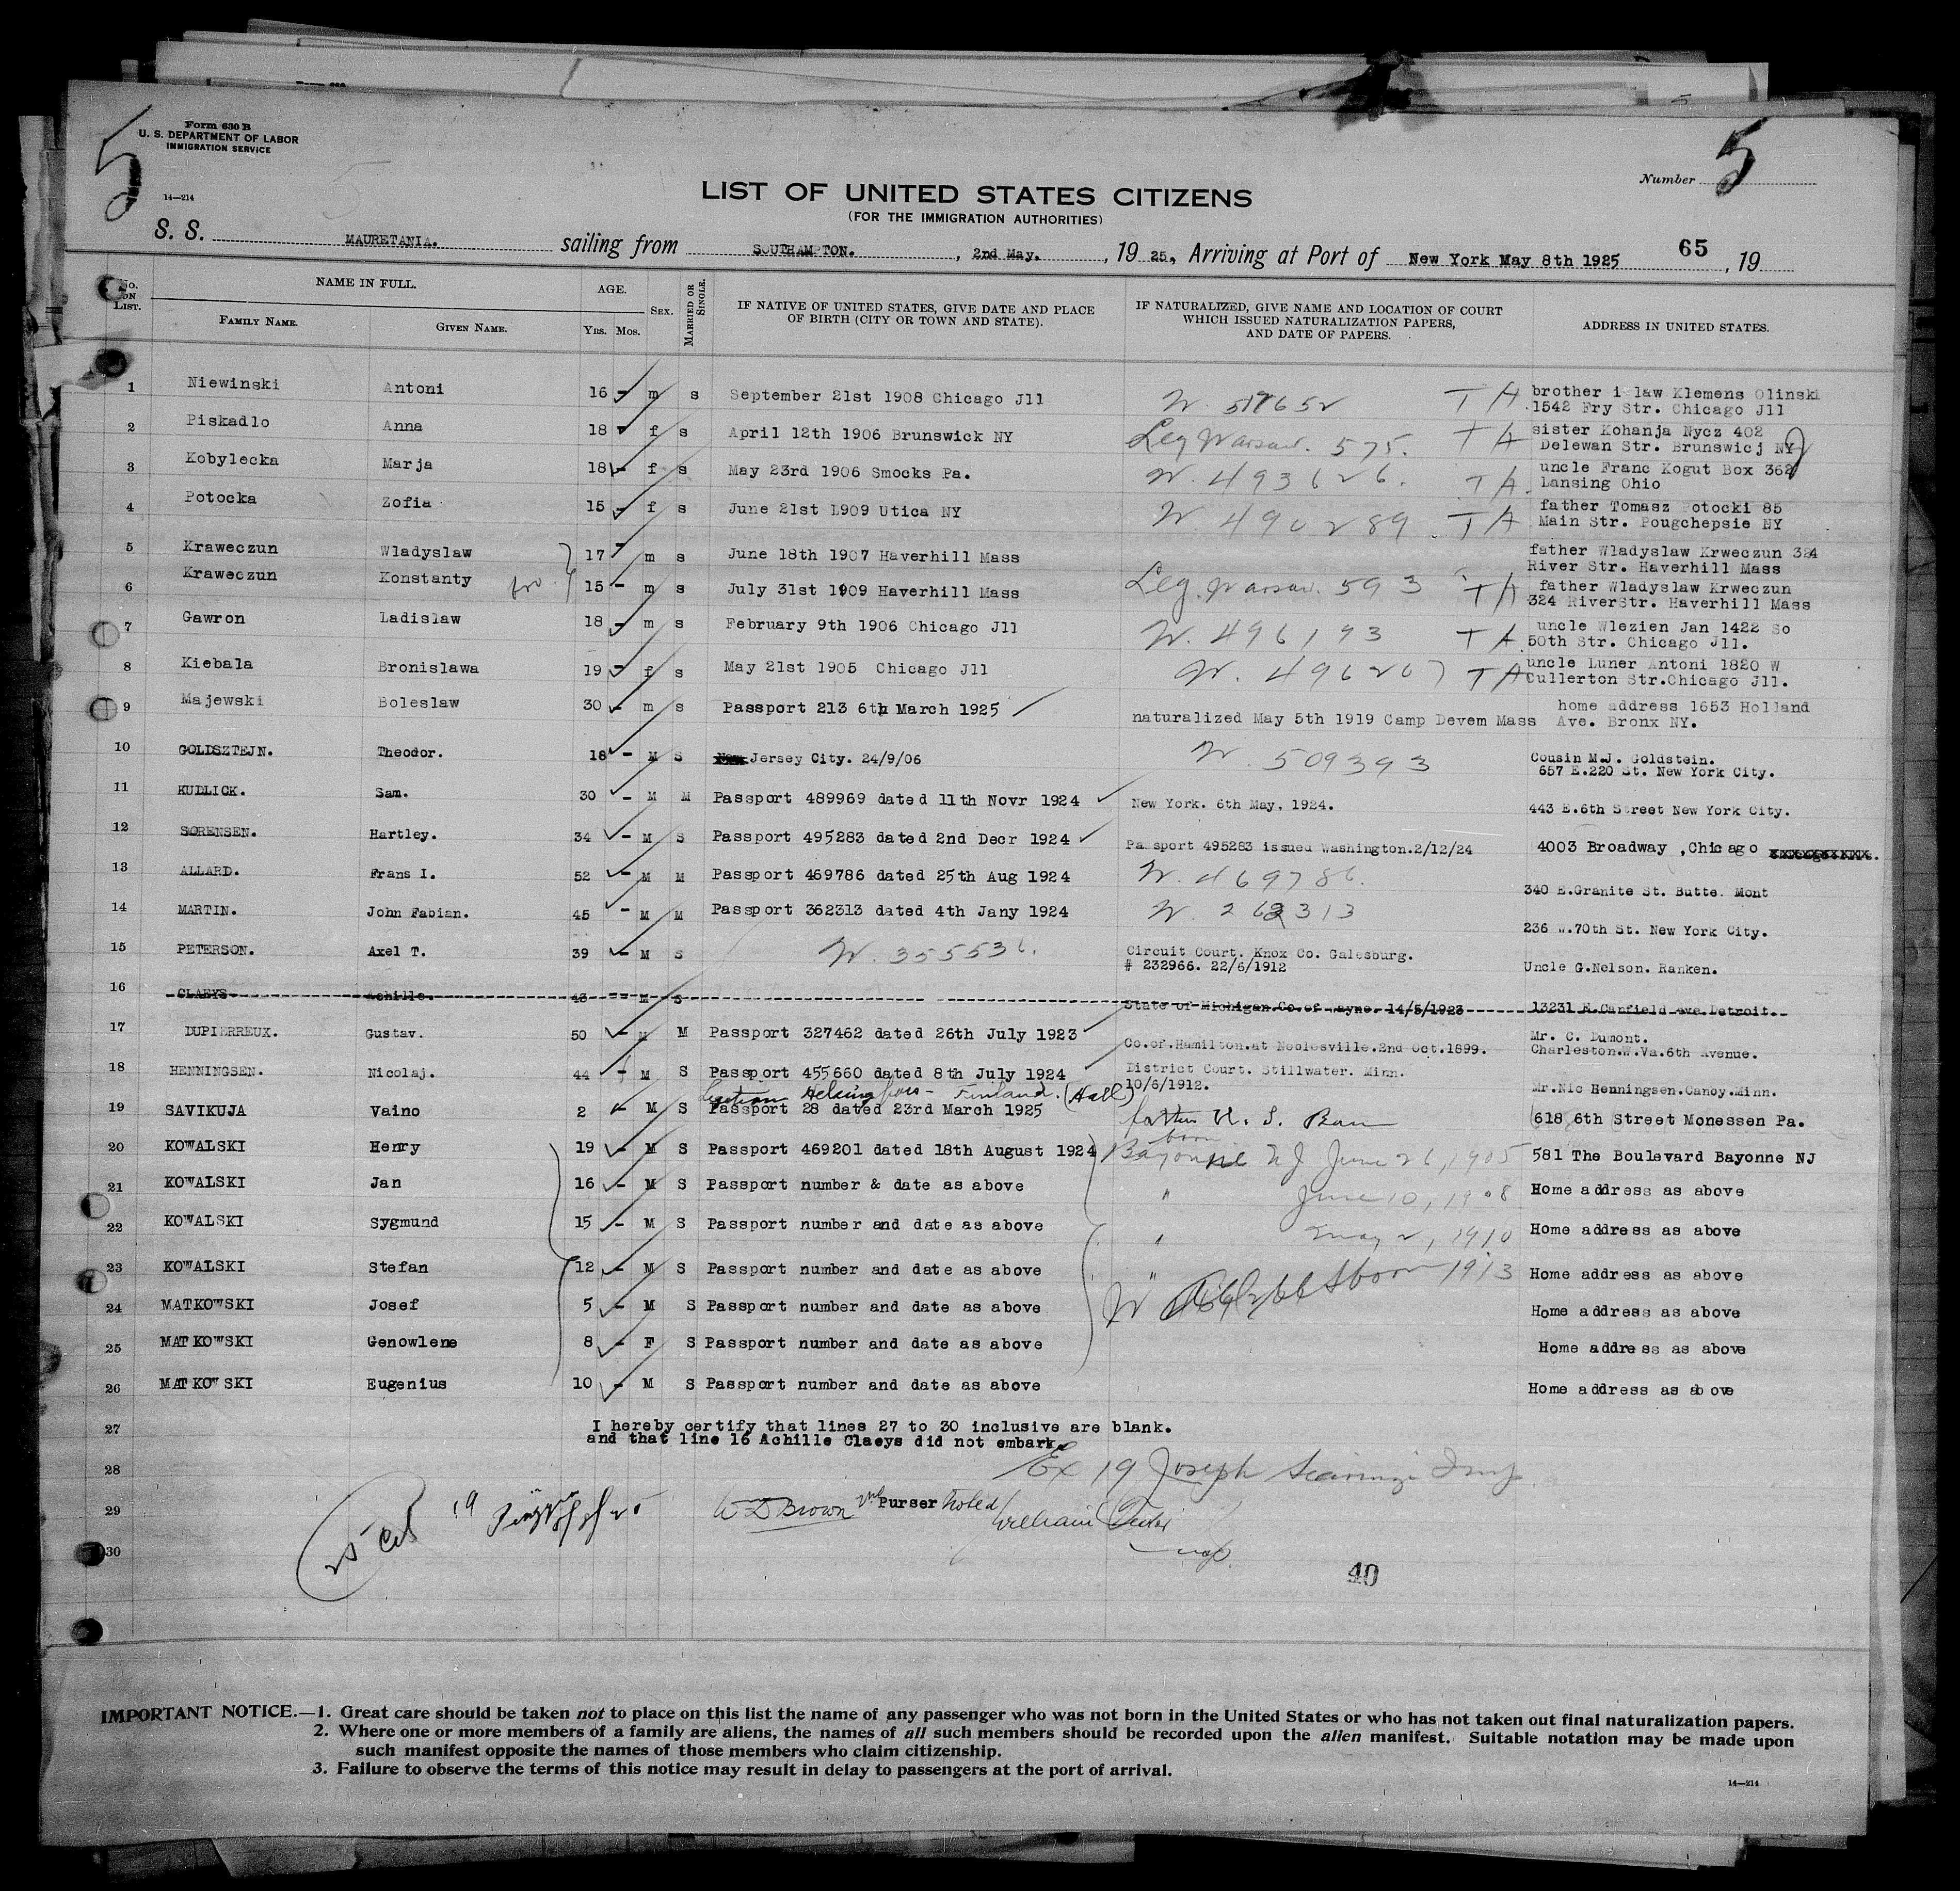 5
Form 630 B
U. S. DEPARTMENT OF LABOR
IMMIGRATION SERVICE
14—214
Number 5
LIST OF UNITED STATES CITIZENS
(FOR THE IMMIGRATION AUTHORITIES)
S. S. MAURETANIA. sailing from SOUTHAMPTON. , 2nd May. , 19 25, Arriving at Port of New York May 8th 1925 65 , 19
No. ON LIST. NAME IN FULL. FAMILY NAME. GIVEN NAME. AGE. YRS. MOS. SEX. MARRIED OR SINGLE. IF NATIVE OF UNITED STATES, GIVE DATE AND PLACE OF BIRTH (CITY OR TOWN AND STATE). IF NATURALIZED, GIVE NAME AND LOCATION OF COURT WHICH ISSUED NATURALIZATION PAPERS, AND DATE OF PAPERS. ADDRESS IN UNITED STATES.
1 Niewinski Antoni 16 - m s September 21st 1908 Chicago Jll W. 517652 T A brother i law Klemens Olinski
1542 Fry Str. Chicago Jll
2 Piskadlo Anna 18 - f s April 12th 1906 Brunswick NY Leg Warsaw. 575. T A sister Kohanja Nycz 402
Delewan Str. Brunswicj NY
3 Kobylecka Marja 18 - f s May 23rd 1906 Smocks Pa. W. 493626. T A. uncle Franc Kogut Box 362
Lansing Ohio
4 Potocka Zofia 15 - f s June 21st 1909 Utica NY W. 490289 T A father Tomasz Potocki 85
Main Str. Pougchepsie NY
5 Kraweczun Wladyslaw 17 - m s June 18th 1907 Haverhill Mass father Wladyslaw Krweczun 324
River Str. Haverhill Mass
6 Kraweczun Konstanty 15 - m s July 31st 1909 Haverhill Mass Leg. Warsaw. 593 T A father Wladyslaw Krweczun
324 RiverStr. Haverhill Mass
7 Gawron Ladislaw 18 - m s February 9th 1906 Chicago Jll W. 496193 T A. uncle Wlezien Jan 1422 So
50th Str. Chicago Jll.
8 Kiebala Bronislawa 19 - f s May 21st 1905 Chicago Jll W. 496207 T A uncle Luner Antoni 1820 W
Cullerton Str.Chicago Jll.
9 Majewski Boleslaw 30 - m s Passport 213 6th March 1925 naturalized May 5th 1919 Camp Devem Mass home address 1653 Holland
Ave. Bronx NY.
10 GOLDSZTEJN. Theodor. 18 - M S Jersey City. 24/9/06 W. 509393 Cousin M.J. Goldstein.
657 E.220 St. New York City.
11 KUDLICK. Sam. 30 - M M Passport 489969 dated 11th Novr 1924 New York. 6th May, 1924. 443 E.6th Street New York City.
12 SORENSEN. Hartley. 34 - M S Passport 495283 dated 2nd Decr 1924 Passport 495283 issued Washington.2/12/24 4003 Broadway ,Chicago
13 ALLARD. Frans I. 52 - M M Passport 469786 dated 25th Aug 1924 W. 469786. 340 E.Granite St. Butte. Mont
14 MARTIN. John Fabian. 45 - M M Passport 362313 dated 4th Jany 1924 W. 262313 236 W.70th St. New York City.
15 PETERSON. Axel T. 39 - M S W. 355536. Circuit Court. Knox Co. Galesburg.
# 232966. 22/6/1912 Uncle G.Nelson. Ranken.
16 CLAEYS. Achille. 43 -- M S State of Michigan.Co.of Wayne. 14/5/1923 13231 E.Canfield Ave.Detroit.
17 DUPIERREUX. Gustav. 50 - M M Passport 327462 dated 26th July 1923 Co.of.Hamilton.at Noblesville.2nd Oct.1899. Mr. C. Dumont.
Charleston.W.Va.6th Avenue.
18 HENNINGSEN. Nicolaj. 44 - M S Passport 455660 dated 8th July 1924 District Court. Stillwater. Minn.
10/6/1912. Mr.Nic Henningsen.Canoy.Minn.
Legation Helsingfors - Finland. (Hall)
19 SAVIKUJA Vaino 2 - M S Passport 28 dated 23rd March 1925 father U. S. Born 618 6th Street Monessen Pa.
20 KOWALSKI Henry 19 - M S Passport 469201 dated 18th August 1924 born Bayonne N J June 26, 1905 581 The Boulevard Bayonne NJ
21 KOWALSKI Jan 16 - M S Passport number & date as above " June 10, 1908 Home address as above
22 KOWALSKI Sygmund 15 - M S Passport number and date as above " May 2, 1910 Home address as above
23 KOWALSKI Stefan 12 - M S Passport number and date as above " 1913 Home address as above
24 MATKOWSKI Josef 5 - M S Passport number and date as above W Home address as above
25 MATKOWSKI Genowlene 8 - F S Passport number and date as above Home address as above
26 MATKOWSKI Eugenius 10 - M S Passport number and date as above Home address as above
27 I hereby certify that lines 27 to 30 inclusive are blank.
and that line 16 Achille Claeys did not embark.
28 Ex 19 Joseph Insp.
29 W D Brown Purser Noted William
30 25 Cit 19
40
IMPORTANT NOTICE.—1. Great care should be taken not to place on this list the name of any passenger who was not born in the United States or who has not taken out final naturalization papers.
2. Where one or more members of a family are aliens, the names of all such members should be recorded upon the alien manifest. Suitable notation may be made upon
such manifest opposite the names of those members who claim citizenship.
3. Failure to observe the terms of this notice may result in delay to passengers at the port of arrival.
14—214